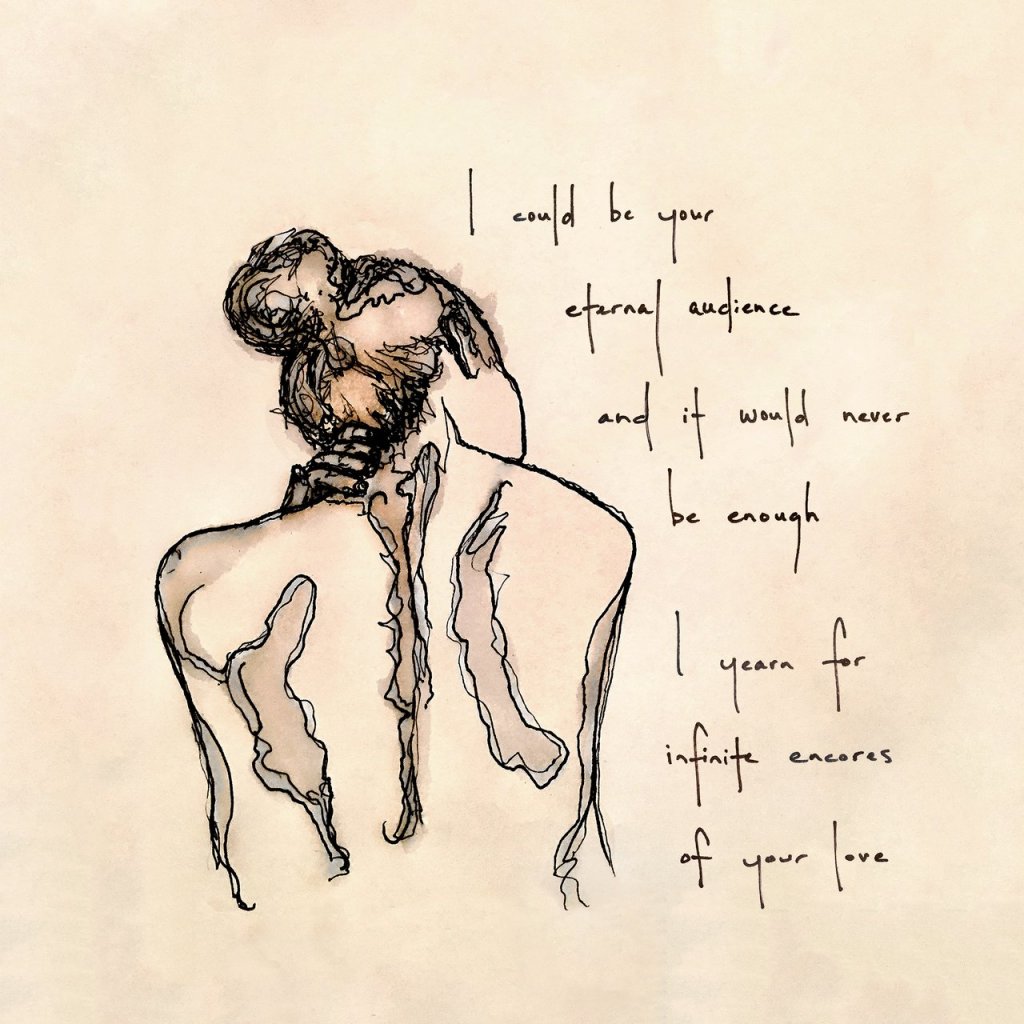 I could be your
eternal audience
and it would never
be enough
I yearn for
infinite encores
of your love